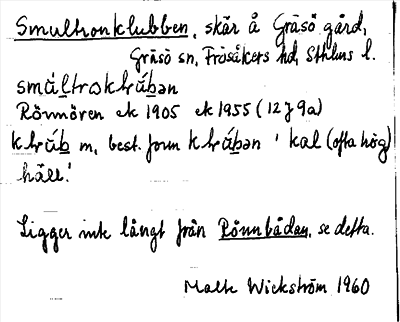 Smultronklubben, skär å Gräsö gård,
Gräsö sn, Frösåkers hd, Sthlms l.
smúltrosklúban
Rönnören ek 1905 ek 1955 (12 J 9a)
klúb m, best. form klúbən 'kal (ofta hög)
häll.'
Ligger inte långt från Rönnbådan, se detta.
Wickström 1960